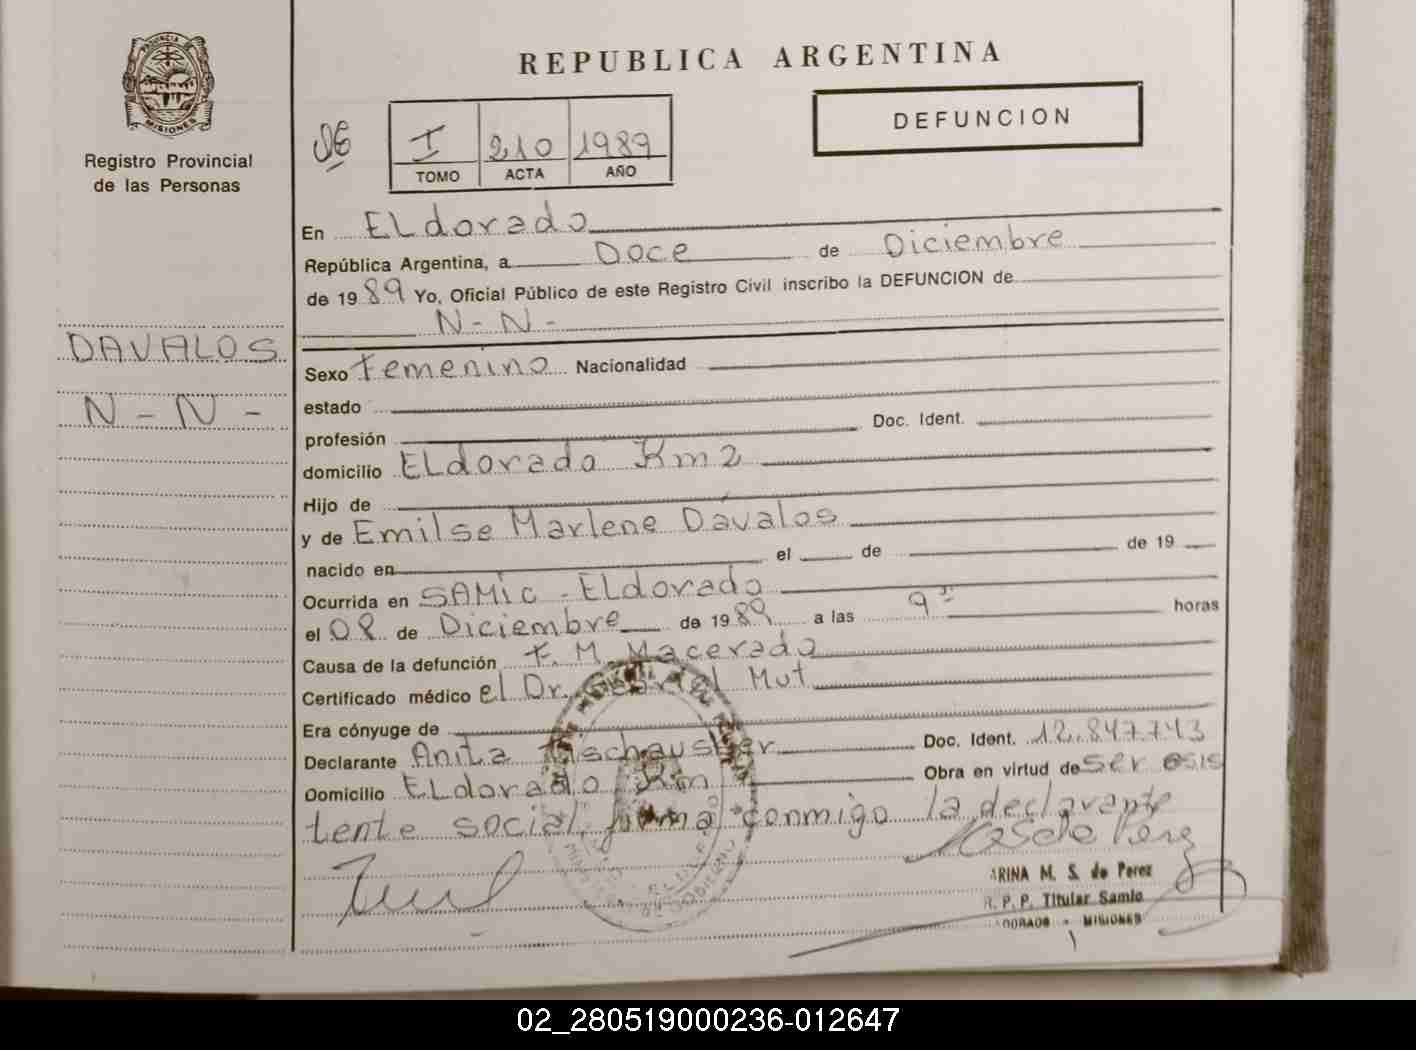 PROVINCIA DE
MISIONES
Registro Provincial
de las Personas
DAVALOS
N - N -
REPUBLICA ARGENTINA
DEFUNCION
I 210 1989
TOMO ACTA AÑO
En ELdorado
República Argentina, a Doce de Diciembre
de 1989 Yo, Oficial Público de este Registro Civil inscribo la DEFUNCION de
N - N -
Sexo Femenino Nacionalidad
estado
profesión Doc. Ident.
domicilio ELdorado Km 2
Hijo de
y de Emilse Marlene Davalos
nacido en el de de 19
Ocurrida en SAMic - ELdorado
el 08 de Diciembre de 1989 a las 9 horas
Causa de la defunción F. M. Macerado
Certificado médico el Dr. Gabriel Mut
Era cónyuge de
Declarante Anita Doc. Ident. 12.847.743
Domicilio ELdorado Km Obra en virtud de ser asis
tente social, firma conmigo la declarante
ARINA M. S. de Perez
R. P. P. Titular Samic
DORADO - MISIONES
02_280519000236-012647